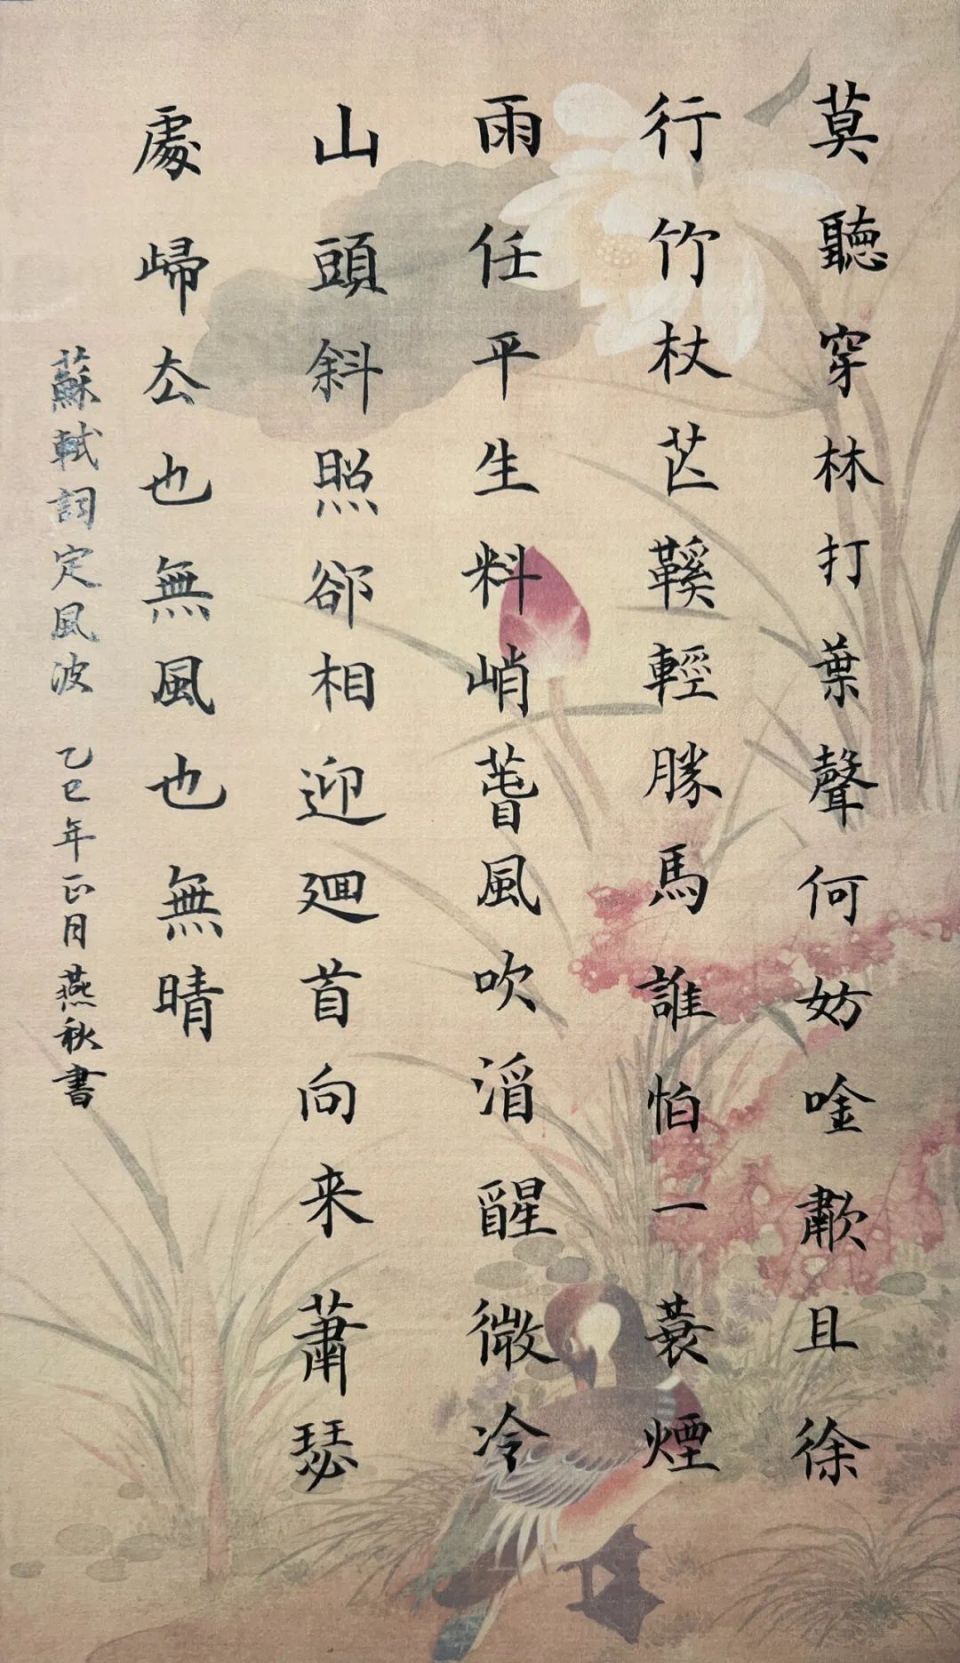 莫聽穿林打葉聲何妨唫歗且徐
行竹杖芒鞵輕勝馬誰怕一蓑煙
雨任平生料峭萅風吹酒醒微冷
山頭斜照卻相迎迴首向来蕭瑟
處歸厺也無風也無晴
蘇軾詞定風波 乙巳年正月燕秋書